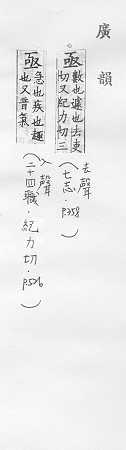 廣韻
亟數也遽也去吏切又紀力切三
去聲(七志.P358)
亟急也疾也趣也又音氣
入聲(二十四職.紀力切.P526)